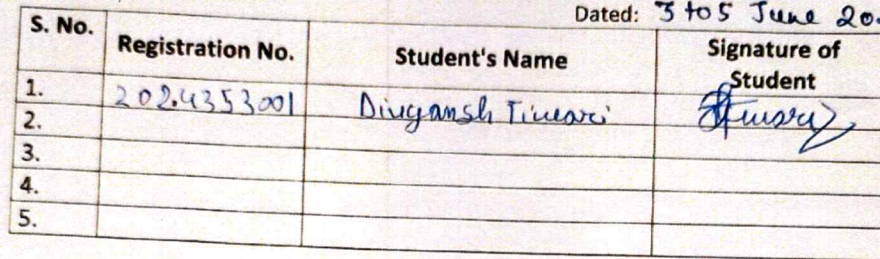 Dated: 3 to 5 June 20
S. No. Registration No. Student's Name Signature of Student
1. 2024353001 Divyansh Tiwari
2.
3.
4.
5.